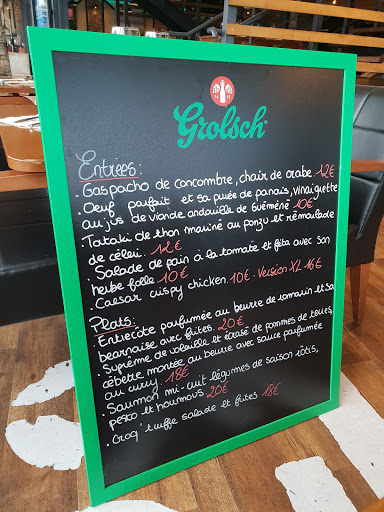 Grolsch
Entrées:
. Gaspacho de concombre, chair de crabe 12€
. Oeuf parfait et sa purée de panais, vinaigrette
au jus de viande andouille de Guéméné 10€
. Tataki de thon mariné au ponzu et rémoulade
de céleri. 12€
. Salade de pain à la tomate et feta avec son
herbe folle 10€
. Caesar crispy chicken. 10€. Version XL 16€
Plats:
. Entrecôte parfumée au beurre de romarin et sa
bearnaise avec frites. 20€
. Suprême de volaille et écrasé de pommes de terres,
cébette, montée au beurre avec sauce parfumée
au curry. 18€
. Saumon mi-cuit légumes de saison rôtis,
pesto et houmous. 20€
. Croq' truffe salade et frites 18€